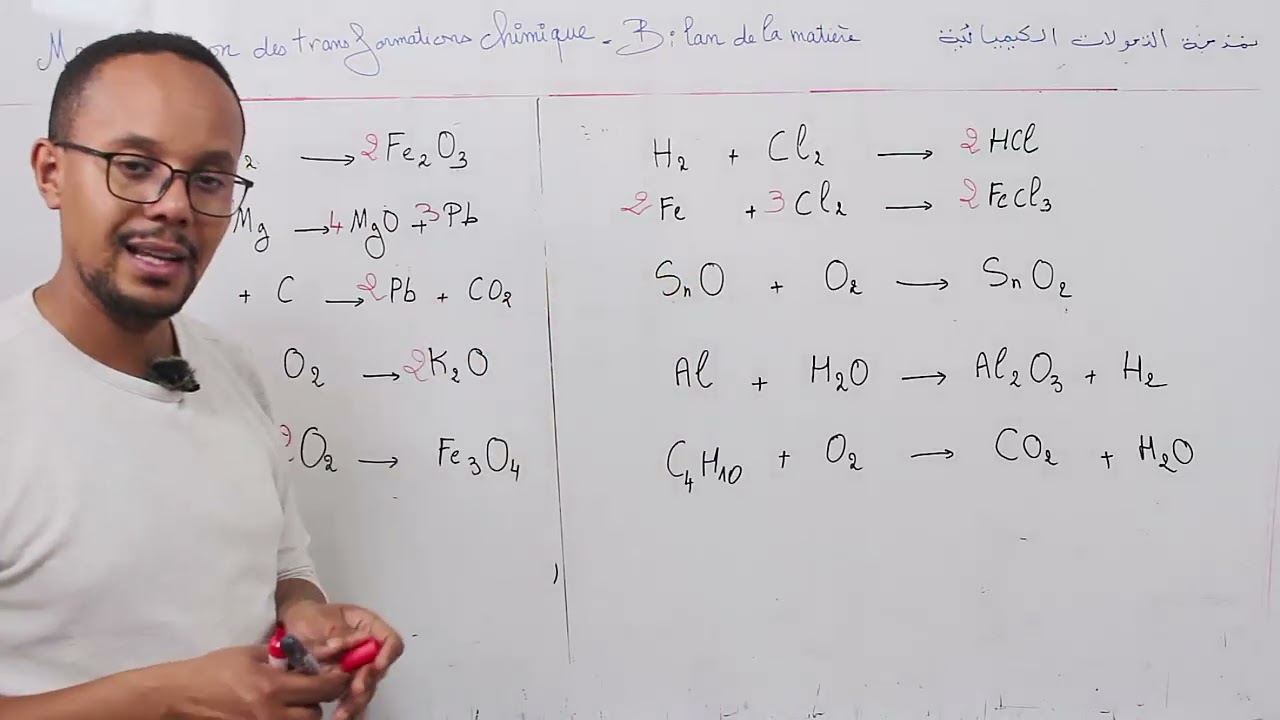 des transformations chimique - Bilan de la matière نمذجة التحولات الكيميائية
2 → 2Fe2O3
Mg → 4MgO + 3Pb
+ C → 2Pb + CO2
O2 → 2K2O
O2 → Fe3O4
H2 + Cl2 → 2HCl
2Fe + 3Cl2 → 2FeCl3
SnO + O2 → SnO2
Al + H2O → Al2O3 + H2
C4H10 + O2 → CO2 + H2O